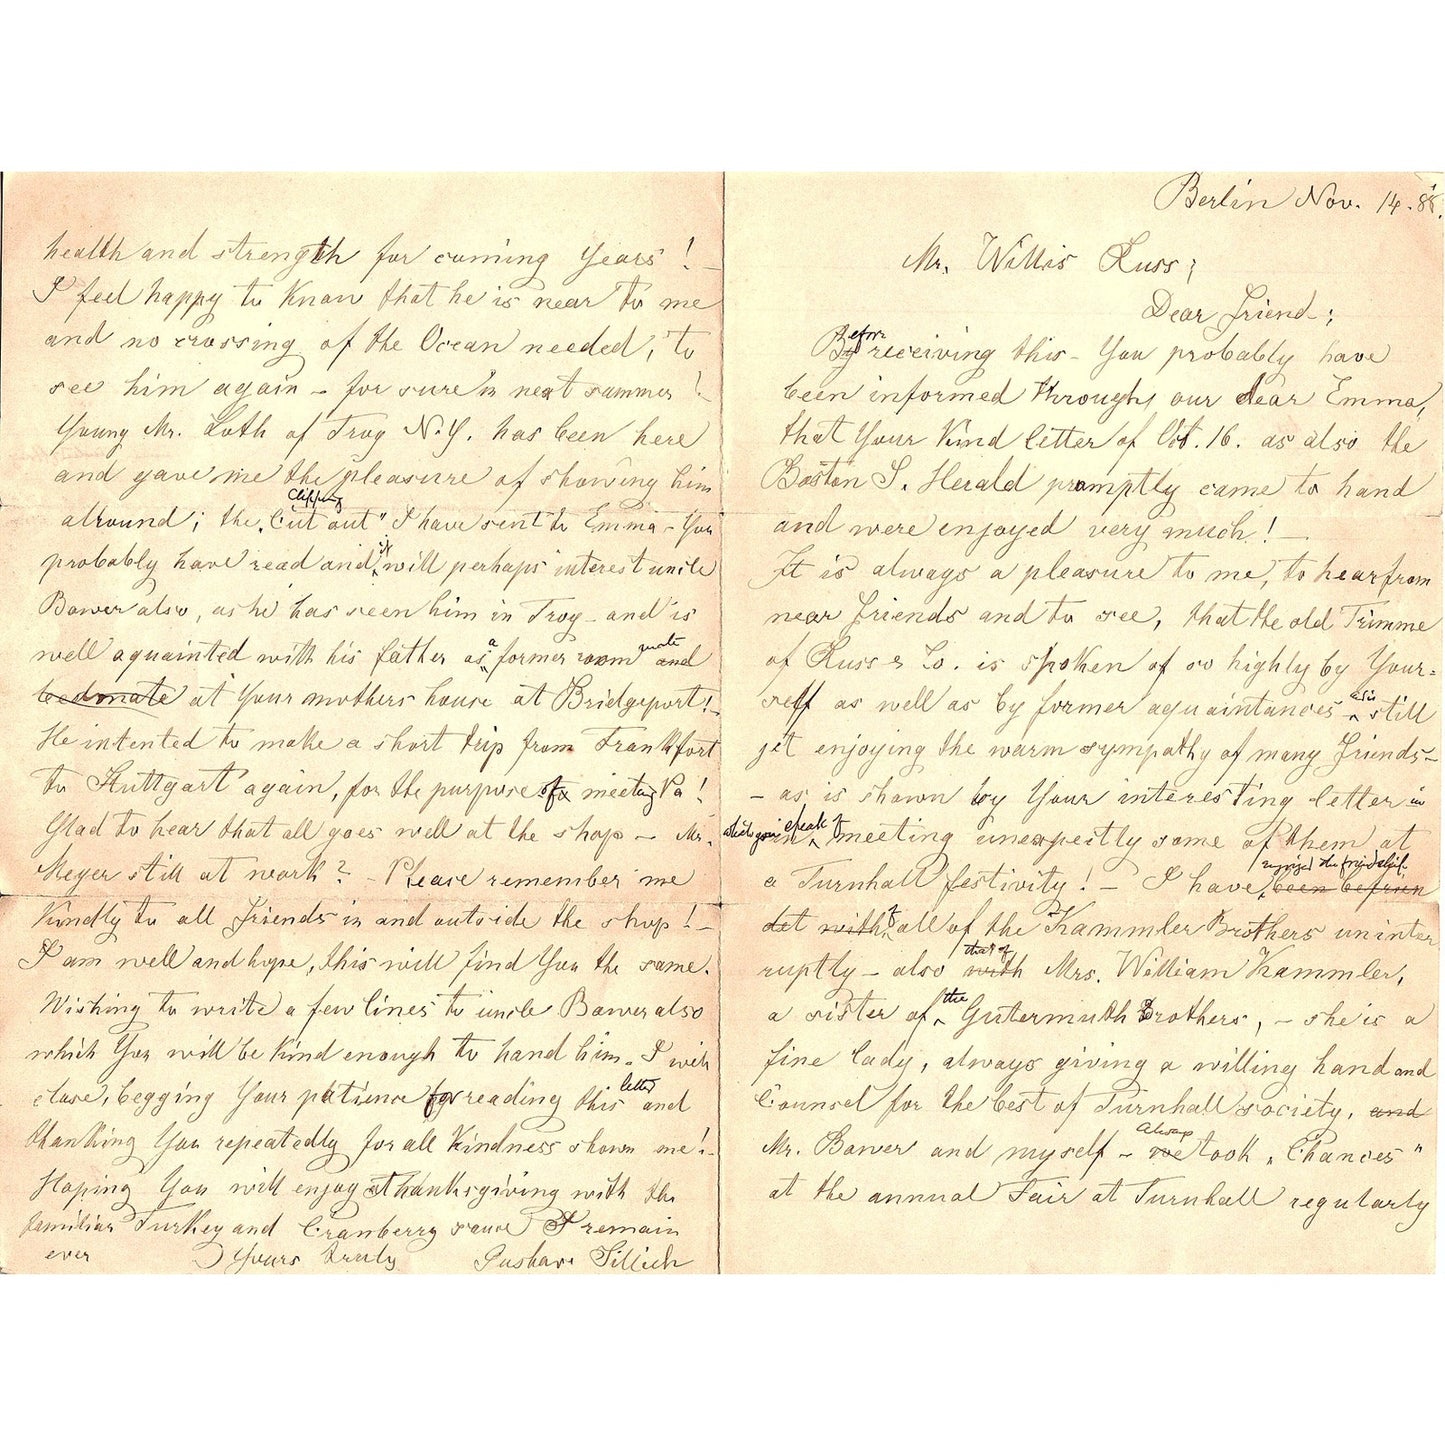 Berlin Nov. 14. 88.
Mr. Willis Russ;
Dear Friend;
Before receiving this - You probably have
been informed through our dear Emma,
that Your Kind letter of Oct. 16. as also the
Boston S. Herald promptly came to hand
and were enjoyed very much! -
It is always a pleasure to me, to hear from
near friends and to see, that the old Trimme
of Russ & Co. is spoken of so highly by Your-
self as well as by former aquaintances still
jet enjoying the warm sympathy of many friends -
- as is shown by Your interesting letter in
speak of meeting unexpectly some of them at
a Turnhall festivity! - I have enjoyed the friendship been befrien
det with of all of the Kammler Brothers uninter
ruptly - also that of with Mrs. William Kammler,
a sister of the Gutermuth Brothers, - she is a
fine lady, always giving a willing hand and
Counsel for the best of Turnhall society, and
Mr. Bower and myself - always we took „Chances"
at the annual Fair at Turnhall regularly
health and strength for coming Years! -
I feel happy to Know that he is near to me
and no crossing of the Ocean needed, to
see him again - for sure in next summer!
Young Mr. Loth of Troy N.Y. has been here
and gave me the pleasure of showing him
allround; the „Cut out" Clipping I have sent to Emma - You
probably have read and it will perhaps interest uncle
Bower also, as he has seen him in Troy - and is
well aquainted with his father as a former room mate and
at Your mothers house at Bridgeport! -
He intented to make a short trip from Frankfort
to Stuttgart again, for the purpose of meeting Pa!
Glad to hear that all goes well at the shop - Mr.
Meyer still at work? - Please remember me
Kindly to all friends in and outside the shop! -
I am well and hope, this will find You the same.
Wishing to write a few lines to uncle Bower also
which You will be Kind enough to hand him. I will
close, begging Your patience for reading this letter and
thanking You repeatedly for all Kindness shown me! -
Hoping You will enjoy thanksgiving with the
familiar Turkey and Cranberry sauce I remain
ever Yours truly Gustave Sillich